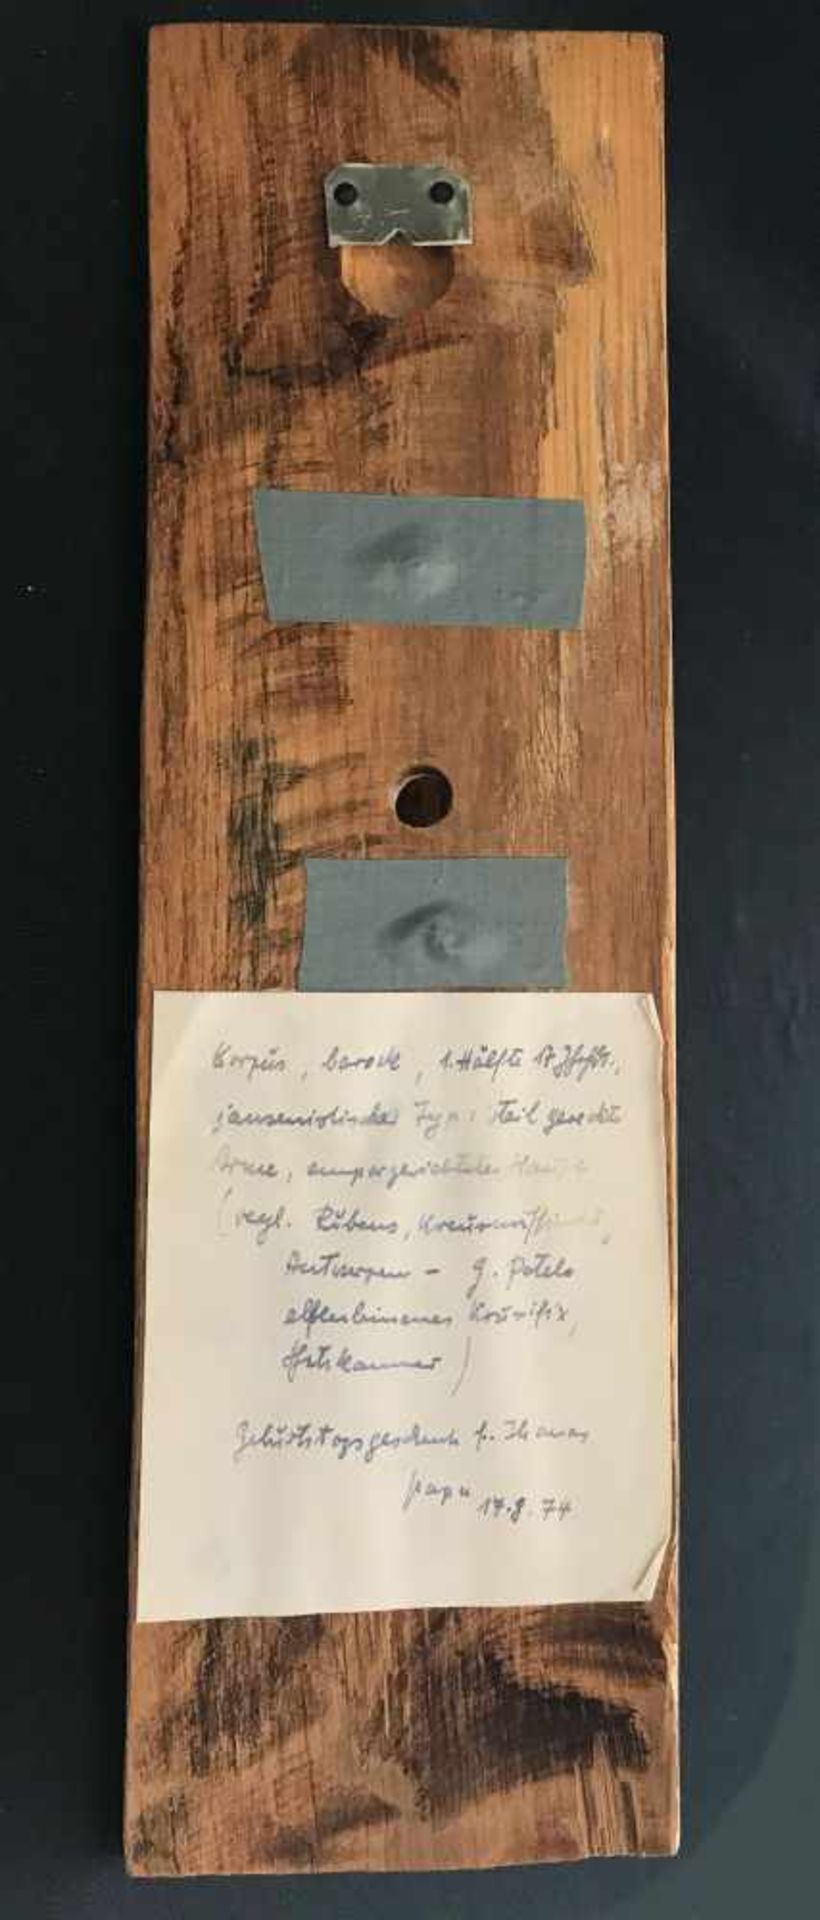 Korpus, barock, 1. Hälfte 17 Jhdt.,
jansenistischer Typ: steil gereckte
Arme, emporgerichtetes Haupt
(vegl. Rubens, Kreuz
Antwerpen - G. Petels
elfenbeinenes Kruzifix,
)
Geburtstagsgeschenk f. Thomas
papa 17.8.74